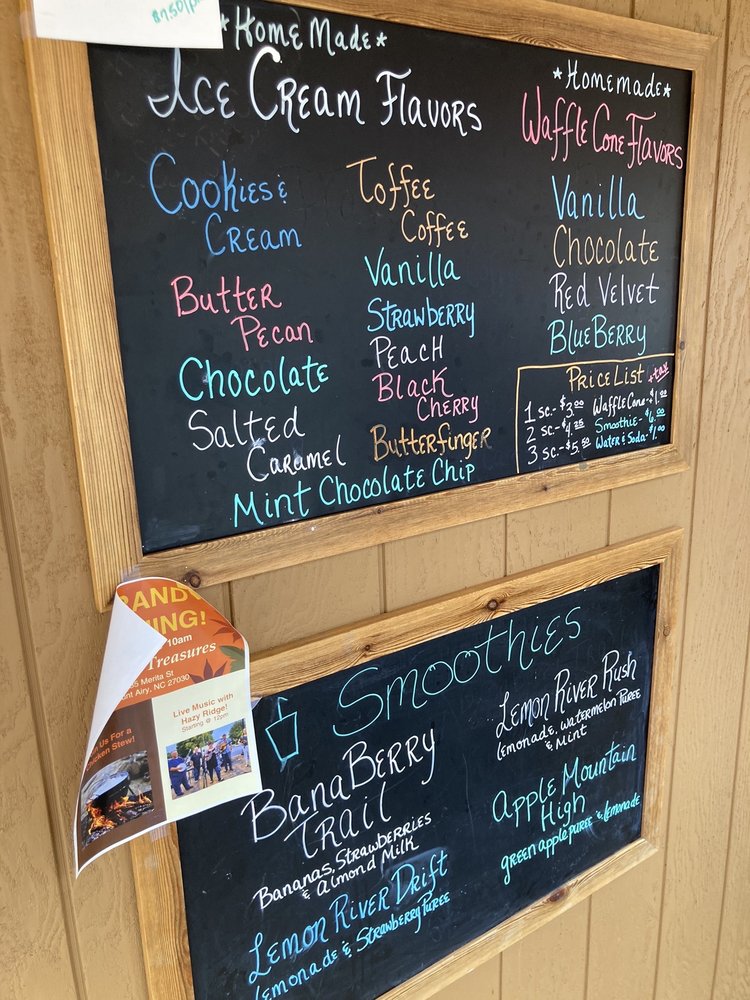 *Home Made*
Ice Cream Flavors
Cookies &
Cream
Butter
Pecan
Chocolate
Salted
Caramel
Toffee
Coffee
Vanilla
Strawberry
Peach
Black
Cherry
Butterfinger
Mint Chocolate Chip
*Homemade*
Waffle Cone Flavors
Vanilla
Chocolate
Red Velvet
BlueBerry
Price List + tax
1 sc.- $3.00
2 sc.- $4.25
3 sc.- $5.50
Waffle Cone- $1.00
Smoothie- $6.00
Water & Soda- $1.00
Smoothies
BanaBerry
Trail
Bananas, Strawberries
& Almond Milk
Lemon River Drift
Lemonade & Strawberry Puree
Lemon River Rush
Lemonade, Watermelon Puree
& Mint
Apple Mountain
High
green apple puree & lemonade
10am
Treasures
Merita St
Airy, NC 27030
Us For a
Chicken Stew!
Live Music with
Hazy Ridge!
Starting @ 12pm